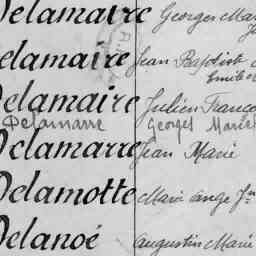 Delamaire Georges Mar
Delamaire Jean Baptiste
Emile
Delamaire Julien Franço
Delamarre Georges Marcel
Delamarre Jean Marie
Delamotte Marie Ange
Delanoé Augustin Marie